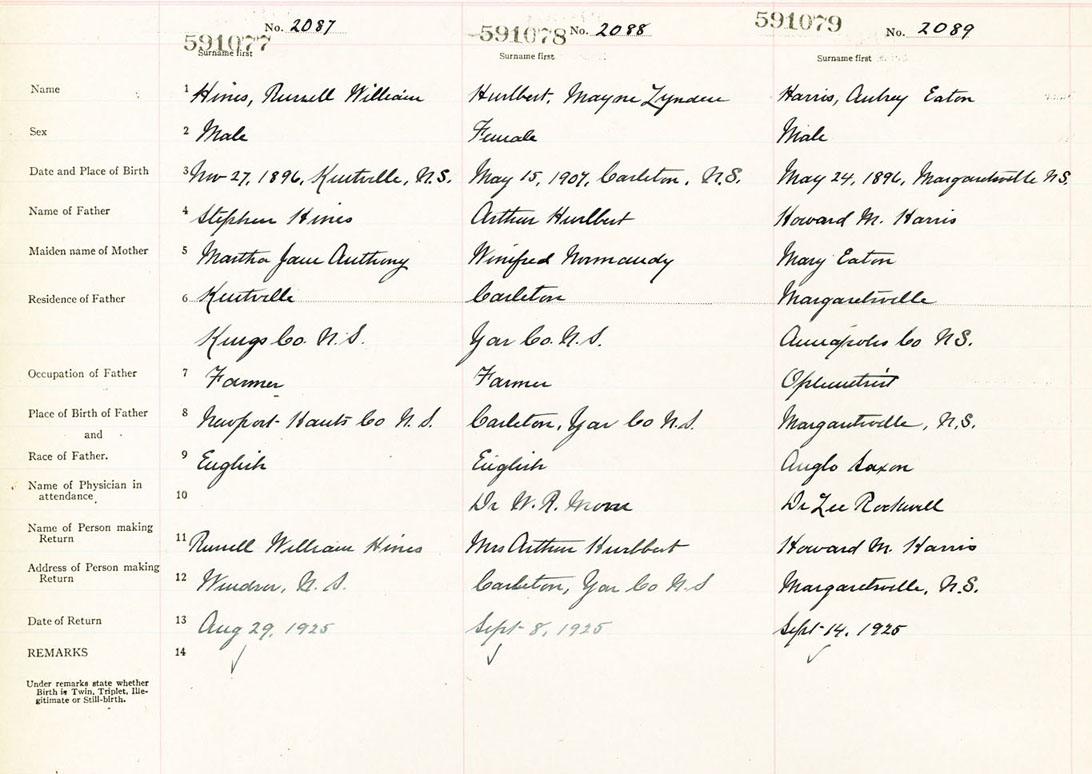 591077 No. 2087 591078 No. 2088 591079 No. 2089
Surname first Surname first Surname first
Name 1 Hines, Russell William Hurlbert, Mayne Harris, Aubrey Eaton
Sex 2 Male Female Male
Date and Place of Birth 3 Nov 27, 1896, Kentville, N.S. May 15, 1907, Carleton, N.S. May 24, 1896, Margaretsville N.S.
Name of Father 4 Stephen Hines Arthur Hurlbert Howard M. Harris
Maiden name of Mother 5 Martha Jane Anthony Winifred Normandy Mary Eaton
Residence of Father 6 Kentville Carleton Margaretsville
Kings Co. N.S. Yar Co. N.S. Annapolis Co N.S.
Occupation of Father 7 Farmer Farmer
Place of Birth of Father 8 Newport Hants Co N.S. Carleton, Yar Co N.S. Margaretsville, N.S.
and
Race of Father. 9 English English Anglo Saxon
Name of Physician in
attendance 10 Dr W. R. Dr Rockwell
Name of Person making
Return 11 Russell William Hines Mrs Arthur Hurlbert Howard M. Harris
Address of Person making
Return 12 Windsor, N.S. Carleton, Yar Co N S Margaretsville, N.S.
Date of Return 13 Aug 29, 1925 Sept 8, 1925 Sept 14, 1925
REMARKS 14
Under remarks state whether
Birth is Twin, Triplet, Ille-
gitimate or Still-birth.